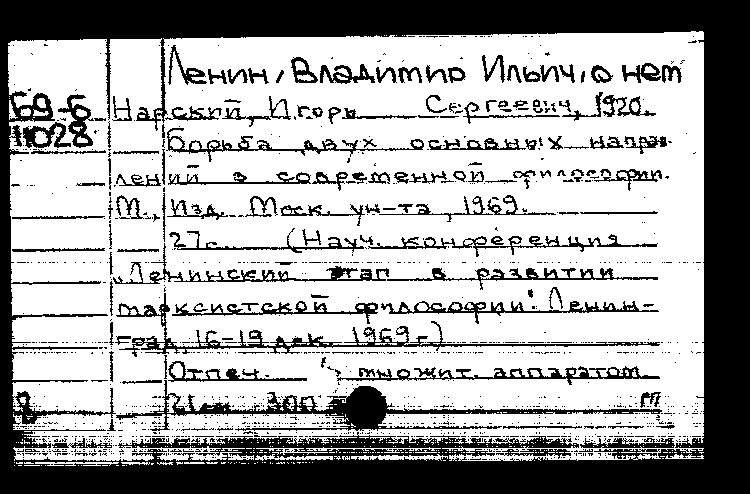 Ленин, Владимир Ильич, о нем
69-6 Нарский, Игорь Сергеевич, 1920.
11028 Борьба двух основных направ-
лений в современной философии.
М., Изд. Моск. ун-та, 1969.
27с. (Науч. конференция
"Ленинский этап в развитии
марксистской философии". Ленин-
град, 16-19 дек. 1969 г.)
Отпеч. множит. аппаратом.
8 21см 300 п